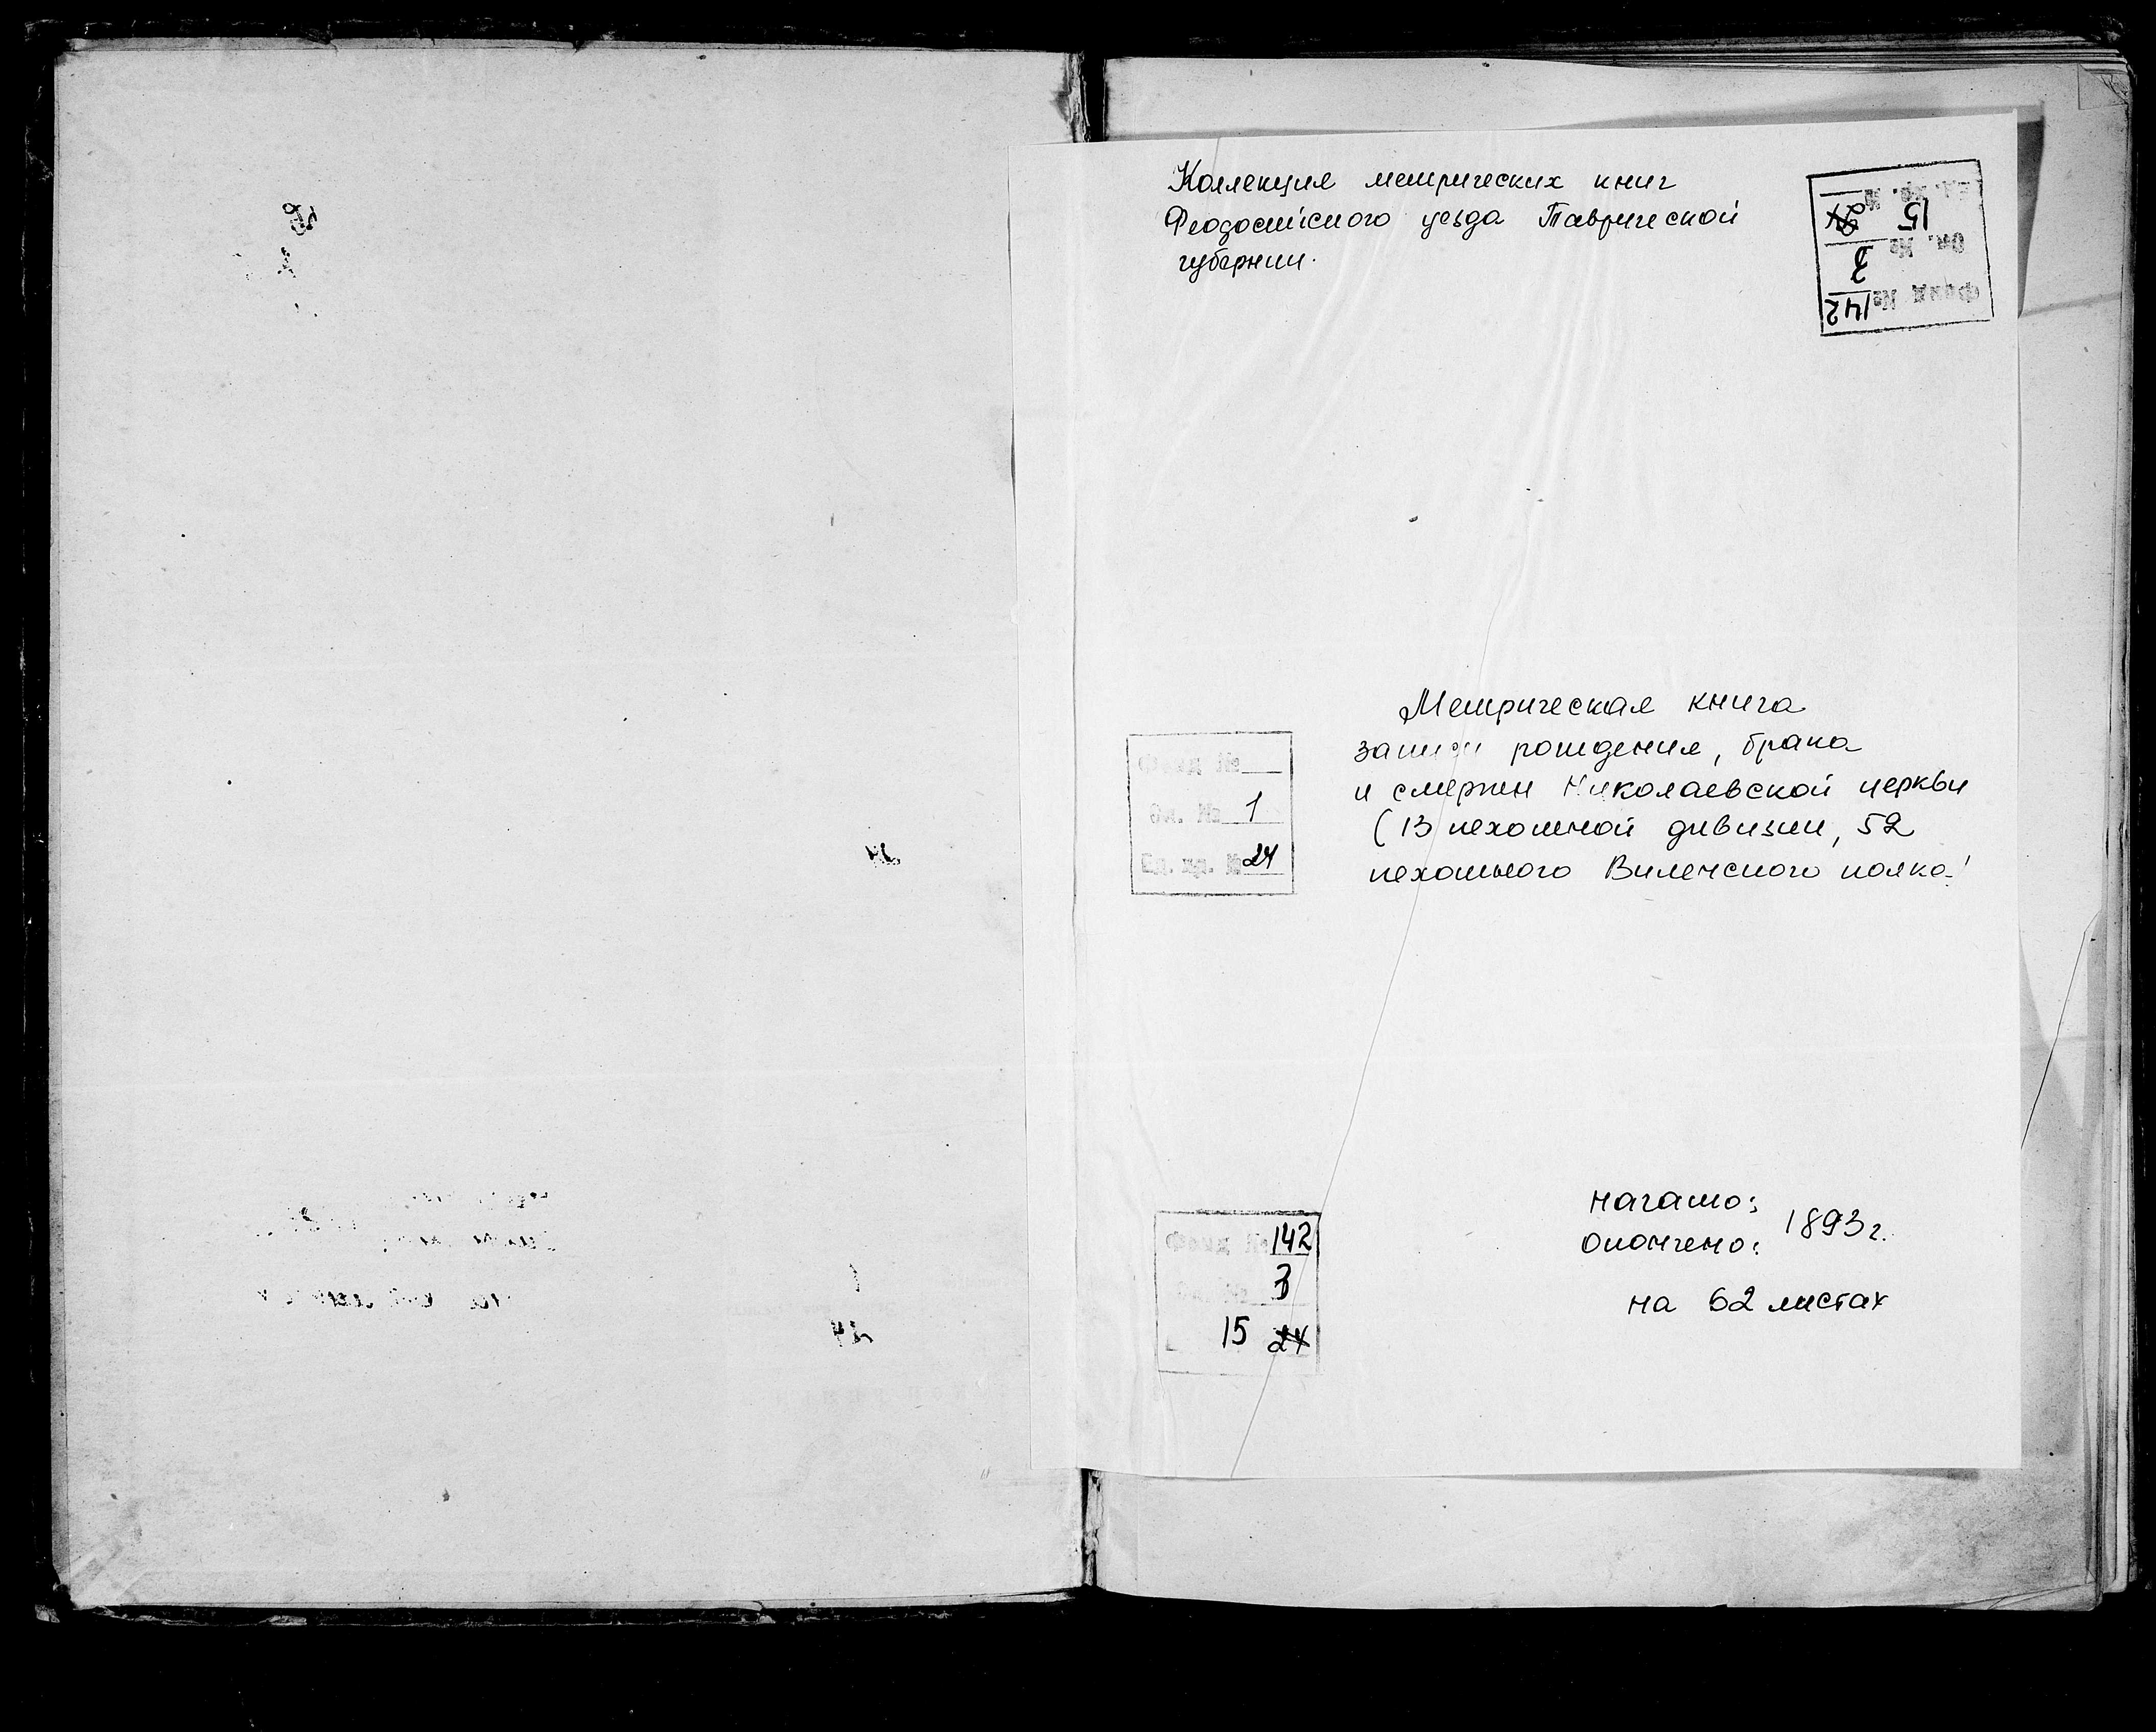 Коллекция метрических книг
Феодосийского уезда Таврической
губернии.
Фонд № 142
Оп. № 3
Ед. хр. № 15 24
Метрическая книга
записи рождения, брака
и смерти Николаевской церкви
(13 пехотной дивизии, 52
пехотного Виленского полка)
Фонд №
Оп. № 1
Ед. хр. № 24
Фонд № 142
Оп. № 3
15 24
Начато:
Окончено: 1893 г.
на 62 листах